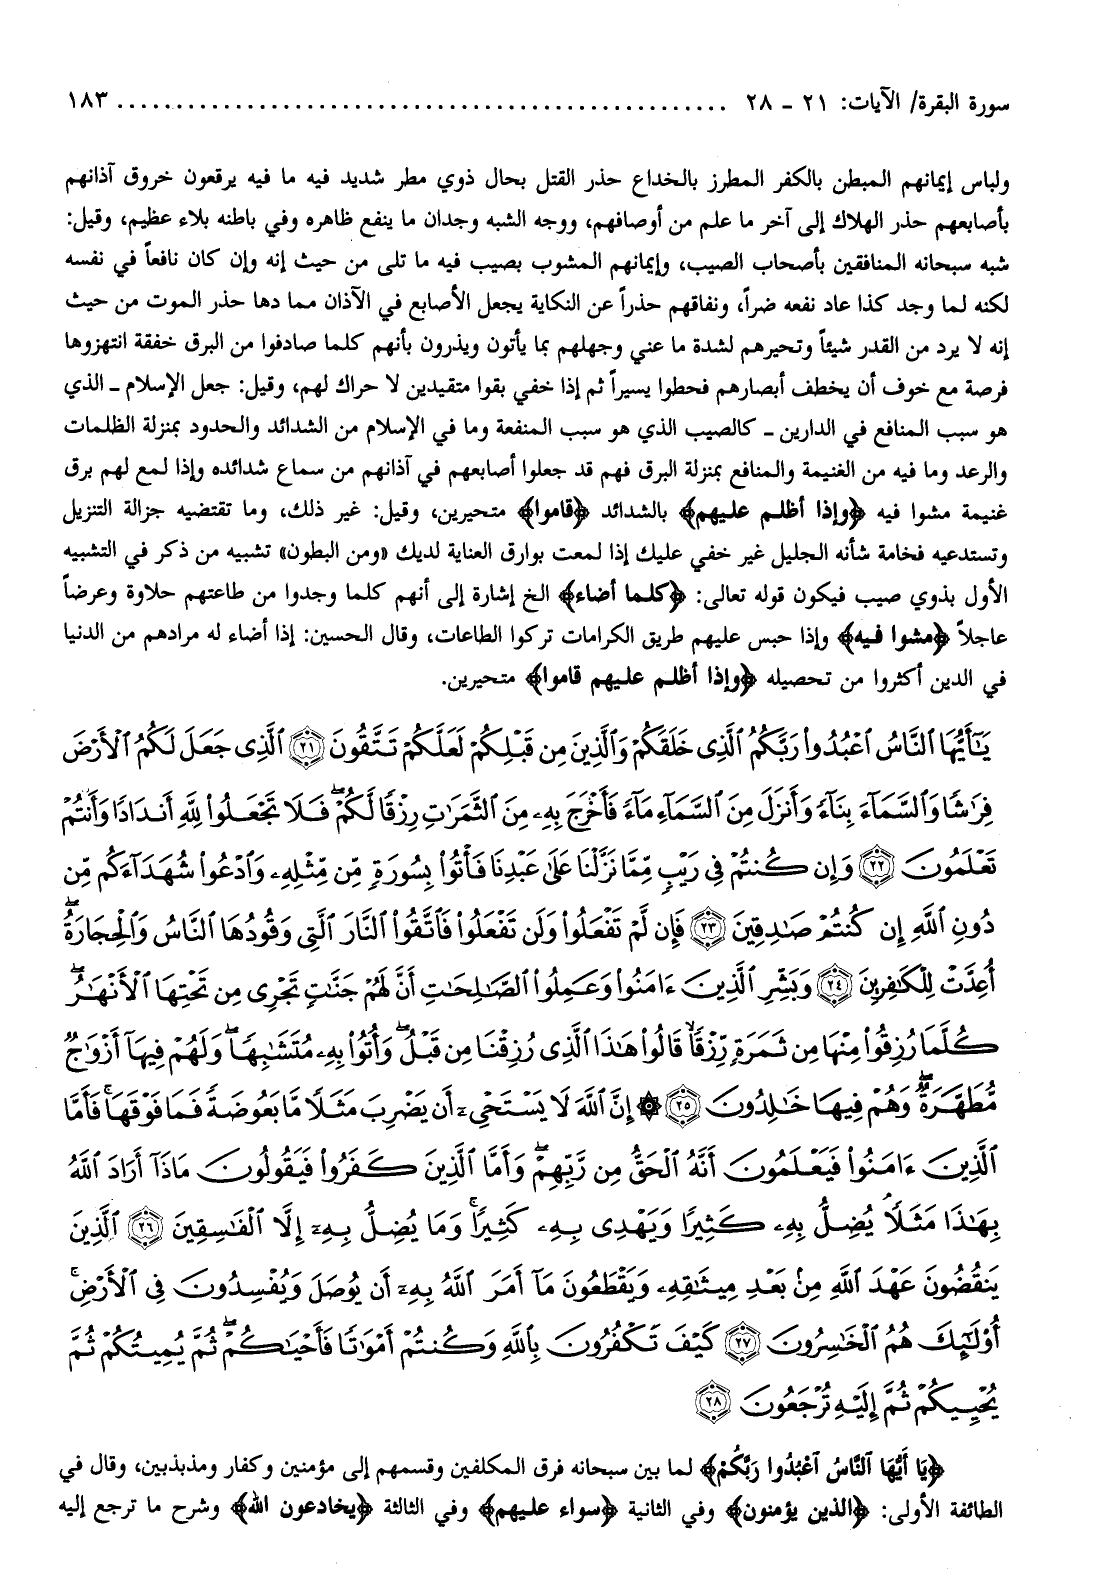 سورة البقرة/ الآيات: ٢١ - ٢٨ ..................................................... ١٨٣
ولباس إيمانهم المبطن بالكفر المطرز بالخداع حذر القتل بحال ذوي مطر شديد فيه ما فيه يرقعون خروق آذانهم
بأصابعهم حذر الهلاك إلى آخر ما علم من أوصافهم، ووجه الشبه وجدان ما ينفع ظاهره وفي باطنه بلاء عظيم، وقيل:
شبه سبحانه المنافقين بأصحاب الصيب، وإيمانهم المشوب بصيب فيه ما تلى من حيث إنه وإن كان نافعاً في نفسه
لكنه لما وجد كذا عاد نفعه ضراً، ونفاقهم حذراً عن النكاية يجعل الأصابع في الآذان مما دها حذر الموت من حيث
إنه لا يرد من القدر شيئاً وتحيرهم لشدة ما عني وجهلهم بما يأتون ويذرون بأنهم كلما صادفوا من البرق خفقة انتهزوها
فرصة مع خوف أن يخطف أبصارهم فحطوا يسيراً ثم إذا خفي بقوا متقيدين لا حراك لهم، وقيل: جعل الإسلام ـ الذي
هو سبب المنافع في الدارين ـ كالصيب الذي هو سبب المنفعة وما في الإسلام من الشدائد والحدود بمنزلة الظلمات
والرعد وما فيه من الغنيمة والمنافع بمنزلة البرق فهم قد جعلوا أصابعهم في آذانهم من سماع شدائده وإذا لمع لهم برق
غنيمة مشوا فيه ﴿وإذا أظلم عليهم﴾ بالشدائد ﴿قاموا﴾ متحيرين، وقيل: غير ذلك، وما تقتضيه جزالة التنزيل
وتستدعيه فخامة شأنه الجليل غير خفي عليك إذا لمعت بوارق العناية لديك «ومن البطون» تشبيه من ذكر في التشبيه
الأول بذوي صيب فيكون قوله تعالى: ﴿كلما أضاء﴾ الخ إشارة إلى أنهم كلما وجدوا من طاعتهم حلاوة وعرضاً
عاجلاً ﴿مشوا فيه﴾ وإذا حبس عليهم طريق الكرامات تركوا الطاعات، وقال الحسين: إذا أضاء له مرادهم من الدنيا
في الدين أكثروا من تحصيله ﴿وإذا أظلم عليهم قاموا﴾ متحيرين.
يَـٰٓأَيُّهَا ٱلنَّاسُ ٱعْبُدُوا۟ رَبَّكُمُ ٱلَّذِى خَلَقَكُمْ وَٱلَّذِينَ مِن قَبْلِكُمْ لَعَلَّكُمْ تَتَّقُونَ ۝٢١ ٱلَّذِى جَعَلَ لَكُمُ ٱلْأَرْضَ
فِرَٰشًا وَٱلسَّمَآءَ بِنَآءً وَأَنزَلَ مِنَ ٱلسَّمَآءِ مَآءً فَأَخْرَجَ بِهِۦ مِنَ ٱلثَّمَرَٰتِ رِزْقًا لَّكُمْ ۖ فَلَا تَجْعَلُوا۟ لِلَّهِ أَندَادًا وَأَنتُمْ
تَعْلَمُونَ ۝٢٢ وَإِن كُنتُمْ فِى رَيْبٍ مِّمَّا نَزَّلْنَا عَلَىٰ عَبْدِنَا فَأْتُوا۟ بِسُورَةٍ مِّن مِّثْلِهِۦ وَٱدْعُوا۟ شُهَدَآءَكُم مِّن
دُونِ ٱللَّهِ إِن كُنتُمْ صَـٰدِقِينَ ۝٢٣ فَإِن لَّمْ تَفْعَلُوا۟ وَلَن تَفْعَلُوا۟ فَٱتَّقُوا۟ ٱلنَّارَ ٱلَّتِى وَقُودُهَا ٱلنَّاسُ وَٱلْحِجَارَةُ ۖ
أُعِدَّتْ لِلْكَـٰفِرِينَ ۝٢٤ وَبَشِّرِ ٱلَّذِينَ ءَامَنُوا۟ وَعَمِلُوا۟ ٱلصَّـٰلِحَـٰتِ أَنَّ لَهُمْ جَنَّـٰتٍ تَجْرِى مِن تَحْتِهَا ٱلْأَنْهَـٰرُ ۖ
كُلَّمَا رُزِقُوا۟ مِنْهَا مِن ثَمَرَةٍ رِّزْقًا ۙ قَالُوا۟ هَـٰذَا ٱلَّذِى رُزِقْنَا مِن قَبْلُ ۖ وَأُتُوا۟ بِهِۦ مُتَشَـٰبِهًا ۖ وَلَهُمْ فِيهَآ أَزْوَٰجٌ
مُّطَهَّرَةٌ ۖ وَهُمْ فِيهَا خَـٰلِدُونَ ۝٢٥ ۞ إِنَّ ٱللَّهَ لَا يَسْتَحْىِۦٓ أَن يَضْرِبَ مَثَلًا مَّا بَعُوضَةً فَمَا فَوْقَهَا ۚ فَأَمَّا
ٱلَّذِينَ ءَامَنُوا۟ فَيَعْلَمُونَ أَنَّهُ ٱلْحَقُّ مِن رَّبِّهِمْ ۖ وَأَمَّا ٱلَّذِينَ كَفَرُوا۟ فَيَقُولُونَ مَاذَآ أَرَادَ ٱللَّهُ
بِهَـٰذَا مَثَلًا ۘ يُضِلُّ بِهِۦ كَثِيرًا وَيَهْدِى بِهِۦ كَثِيرًا ۚ وَمَا يُضِلُّ بِهِۦٓ إِلَّا ٱلْفَـٰسِقِينَ ۝٢٦ ٱلَّذِينَ
يَنقُضُونَ عَهْدَ ٱللَّهِ مِنۢ بَعْدِ مِيثَـٰقِهِۦ وَيَقْطَعُونَ مَآ أَمَرَ ٱللَّهُ بِهِۦٓ أَن يُوصَلَ وَيُفْسِدُونَ فِى ٱلْأَرْضِ ۚ
أُو۟لَـٰٓئِكَ هُمُ ٱلْخَـٰسِرُونَ ۝٢٧ كَيْفَ تَكْفُرُونَ بِٱللَّهِ وَكُنتُمْ أَمْوَٰتًا فَأَحْيَـٰكُمْ ۖ ثُمَّ يُمِيتُكُمْ ثُمَّ
يُحْيِيكُمْ ثُمَّ إِلَيْهِ تُرْجَعُونَ ۝٢٨
﴿يَا أَيُّهَا ٱلنَّاسُ ٱعْبُدُوا رَبَّكُمْ﴾ لما بين سبحانه فرق المكلفين وقسمهم إلى مؤمنين وكفار ومذبذبين، وقال في
الطائفة الأولى: ﴿الذين يؤمنون﴾ وفي الثانية ﴿سواء عليهم﴾ وفي الثالثة ﴿يخادعون الله﴾ وشرح ما ترجع إليه